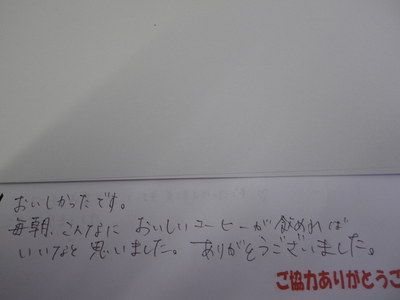 おいしかったです。
毎朝、こんなに おいしいコーヒーが 飲めれば
いいなと 思いました。ありがとうございました。
ご協力ありがとうご